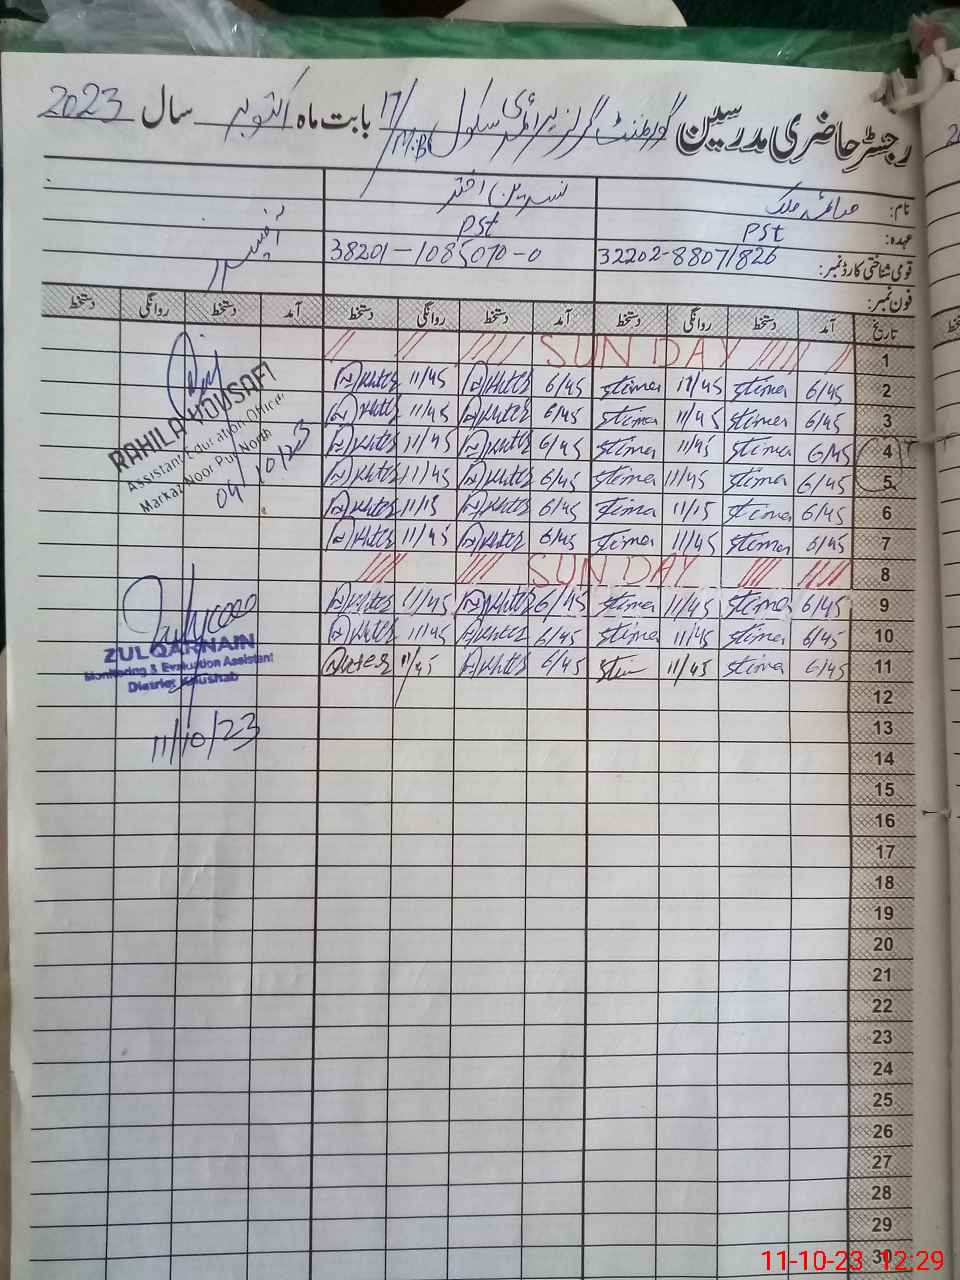 رجسٹر حاضری مدرسین گورنمنٹ گرلز پرائمری سکول 17/M.B بابت ماہ اکتوبر سال 2023
نام: صائمہ ملک نسرین اختر آفیسر
عہدہ: PST PST
قومی شناختی کارڈ نمبر: 32202-88071826 38201-1085070-0
فون نمبر:
تاریخ آمد دستخط روانگی دستخط آمد دستخط روانگی دستخط آمد دستخط روانگی دستخط
1 SUNDAY
2 6/45 Stima 11/45 Stima 6/45 Akhter 11/45 Akhter
3 6/45 Stima 11/45 Stima 6/45 Akhter 11/45 Akhter
4 6/45 Stima 11/45 Stima 6/45 Akhter 11/45 Akhter
5 6/45 Stima 11/45 Stima 6/45 Akhter 11/45 Akhter
6 6/45 Stima 11/15 Stima 6/45 Akhter 11/15 Akhter
7 6/45 Stima 11/45 Stima 6/45 Akhter 11/45 Akhter
8 SUNDAY
9 6/45 Stima 11/45 Stima 6/45 Akhter 11/45 Akhter
10 6/45 Stima 11/45 Stima 6/45 Akhter 11/45 Akhter
11 6/45 Stima 11/45 6/45 Akhter 11/45
12
13
14
15
16
17
18
19
20
21
22
23
24
25
26
27
28
29
30
RAHILA YOUSAFI
Assistant Education Officer
Markaz Noor Pur North
04/10/23
ZULQARNAIN
Monitoring & Evaluation Assistant
District Khushab
11/10/23
11-10-23 12:29